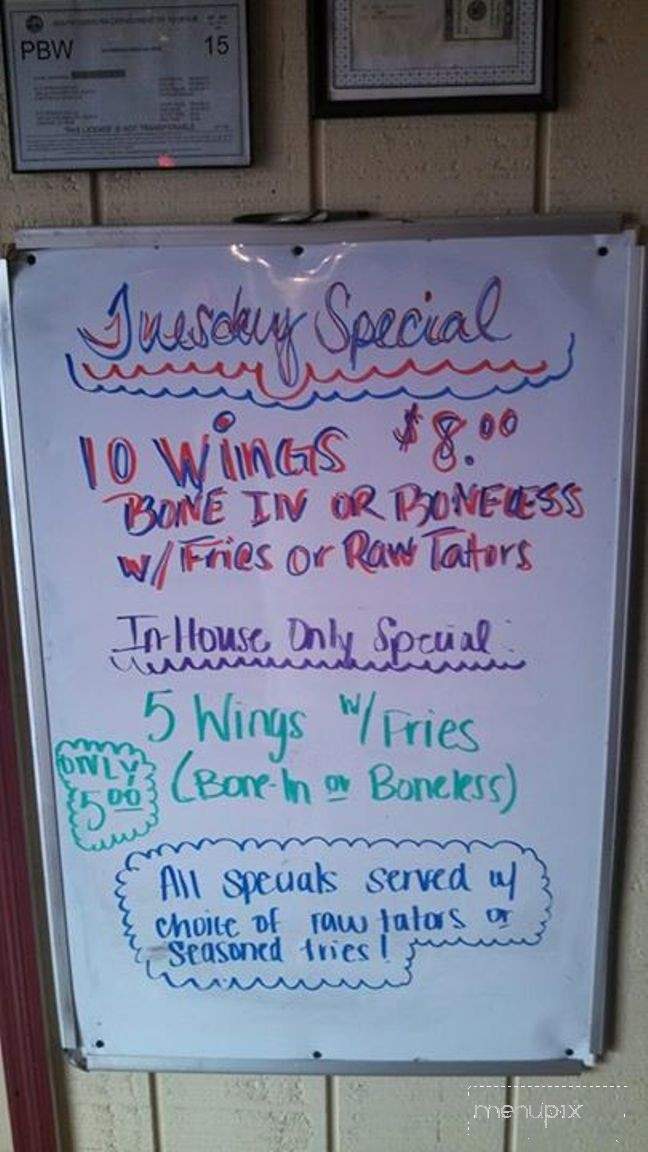 PBW
15
THIS LICENSE IS NOT TRANSFERABLE
Tuesday Special
10 WiNGS $8.00
BONE IN OR BONELESS
w/ Fries or Raw Tators
In-House Only Special:
5 Wings w/ Fries
(Bone-In or Boneless)
ONLY
5.00
All specials served w/
choice of raw tators or
seasoned fries!
menupix